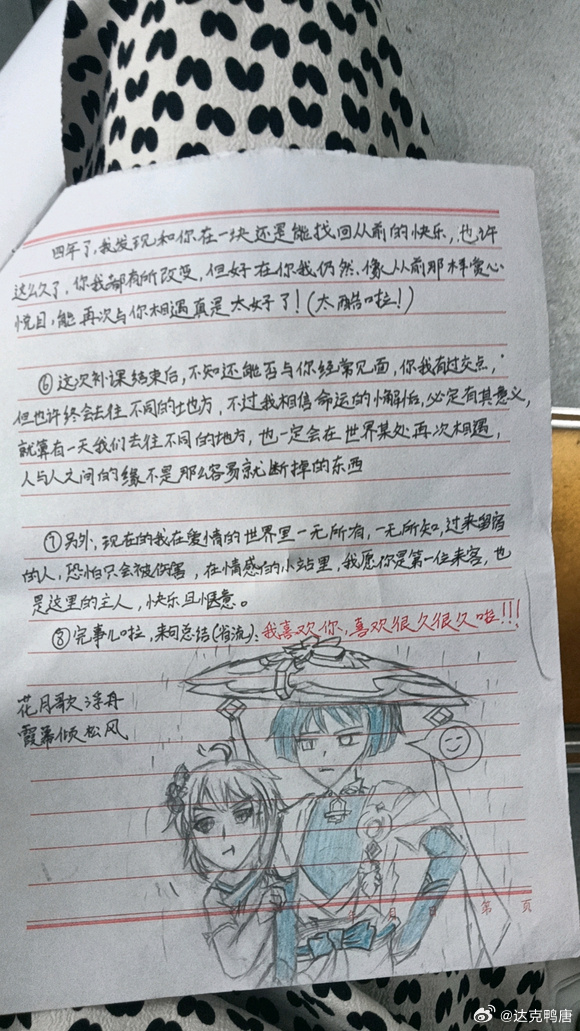 四年了，我发现和你在一块还是能找回从前的快乐，也许
这么久了，你我都有所改变，但好在你我仍然，像从前那样赏心
悦目，能再次与你相遇真是太好了！（太酷啦！）
⑥这次补课结束后，不知还能否与你经常见面，你我有过交点，
但也许终会去往不同的地方，不过我相信命运的邂逅，必定有其意义，
就算有一天我们去往不同的地方，也一定会在世界某处再次相遇，
人与人之间的缘不是那么容易就断掉的东西
⑦另外，现在的我在爱情的世界里一无所有，一无所知，过来留宿
的人，恐怕只会被伤害，在情感的小站里，我愿你是第一位来客，也
是这里的主人，快乐且惬意。
⑧完事儿啦，来句总结（省流）：我喜欢你，喜欢很久很久啦!!!
花月歌浮舟
霞幕倾松风
年 月 日 第 页
@达克鸭唐